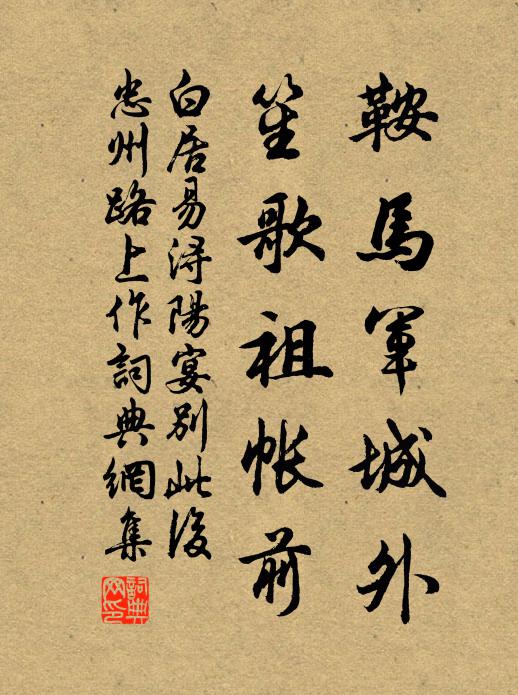 鞍馬軍城外
笙歌祖帳前
白居易潯陽宴別此後
忠州路上作詞典網集
詞典
网印